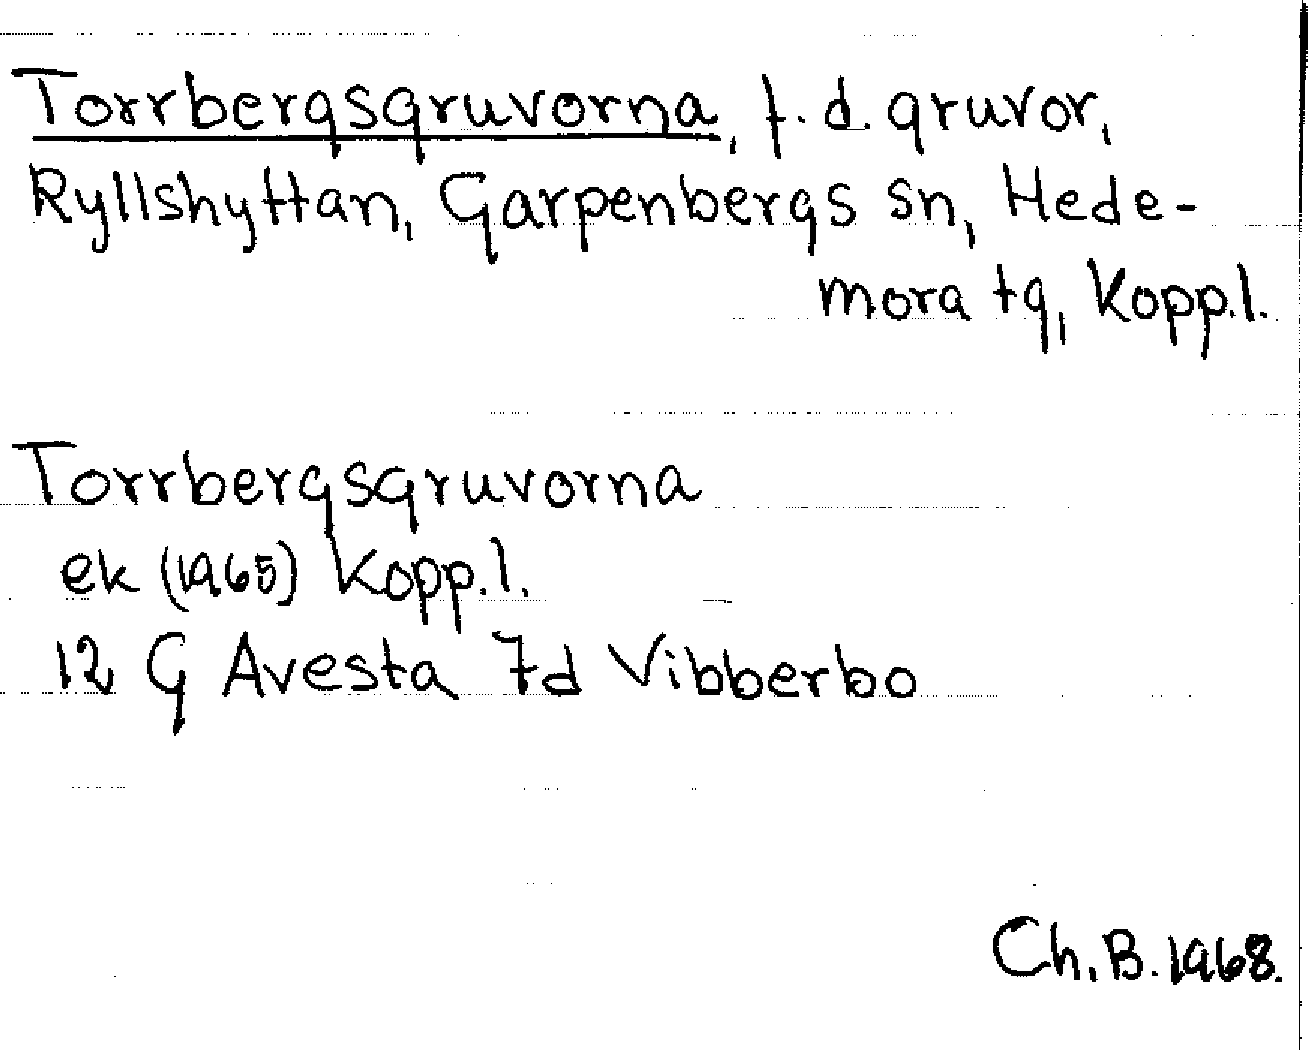 Torrbergsgruvorna, f.d. gruvor,
Ryllshyttan, Garpenbergs sn, Hede-
mora tg, Kopp.l.
Torrbergsgruvorna
ek (1965) Kopp.l.
12 G Avesta 7d Vibberbo
Ch.B. 1968.